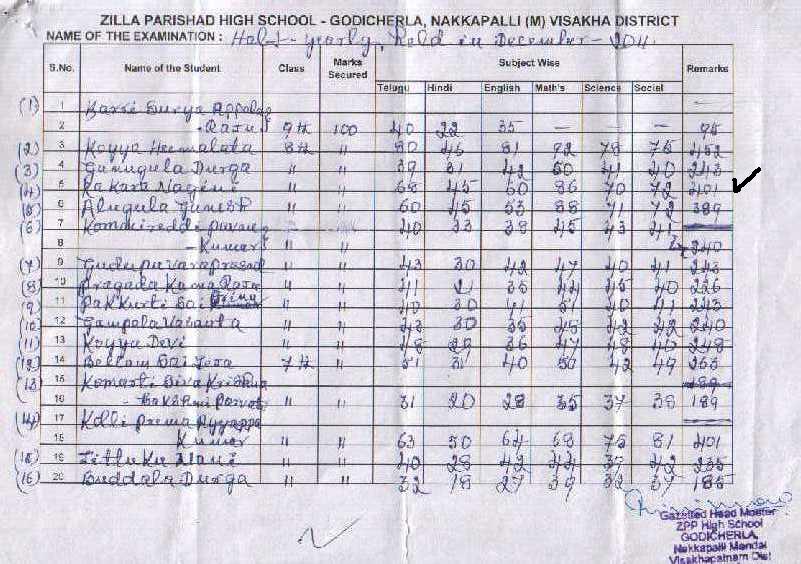 ZILLA PARISHAD HIGH SCHOOL - GODICHERLA, NAKKAPALLI (M) VISAKHA DISTRICT
NAME OF THE EXAMINATION : Half-yearly, held in December-2011
S.No. Name of the Student Class Marks Secured Subject Wise Remarks
Telugu Hindi English Math's Science Social
(1) 1 Surya Appala
2 Raju 9th 100 40 22 35 — — — 95
(2) 3 Koyya Heemalata 8th " 80 46 81 92 78 75 452
(3) 4 Ganugula Durga " " 39 31 42 50 41 40 243
(4) 5 Kakara Nageni " " 68 45 60 86 70 72 401
(5) 6 Alugula Ganesh " " 60 45 53 88 71 72 389
(6) 7 Kommireddi Pavan 40 33 38 45 43 41
8 - Kumar " " 240
(7) 9 Gudupu Varaprasad " " 43 30 42 47 40 41 243
(8) 10 Pragada Kama Raju " " 41 21 35 44 45 40 226
(9) 11 Pakkurti Sai " " 40 30 41 51 40 41 243
(10) 12 Gampala Vasanta " " 43 30 35 45 42 42 240
(11) 13 Koyya Devi " " 48 29 36 47 48 40 248
(12) 14 Bellam Sai Teja 7th " 51 31 40 50 42 49 263
(13) 15 Komarti Siva Krishna
16 - Lakshmi Parvati " 31 20 28 35 37 38 189
(14) 17 Kolli Prema Ayyappa
18 Kumar " " 63 50 64 68 75 81 401
(15) 19 " " 40 28 42 44 37 42 235
(16) 20 Buddala Durga " " 32 18 27 39 32 37 185
Gazetted Head Master
ZPP High School
GODICHERLA,
Nakkapalli Mandal
Visakhapatnam Dist